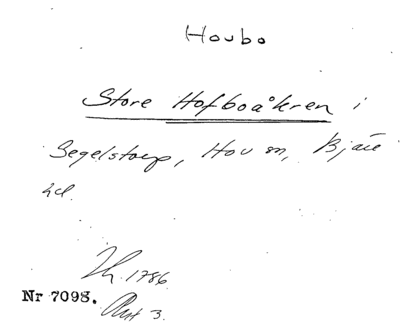 Houbo
Store Hofboåkren i
Segelstorp, Hov sn, Bjäre
hd.
1786.
Nr 7098.
Akt 3.